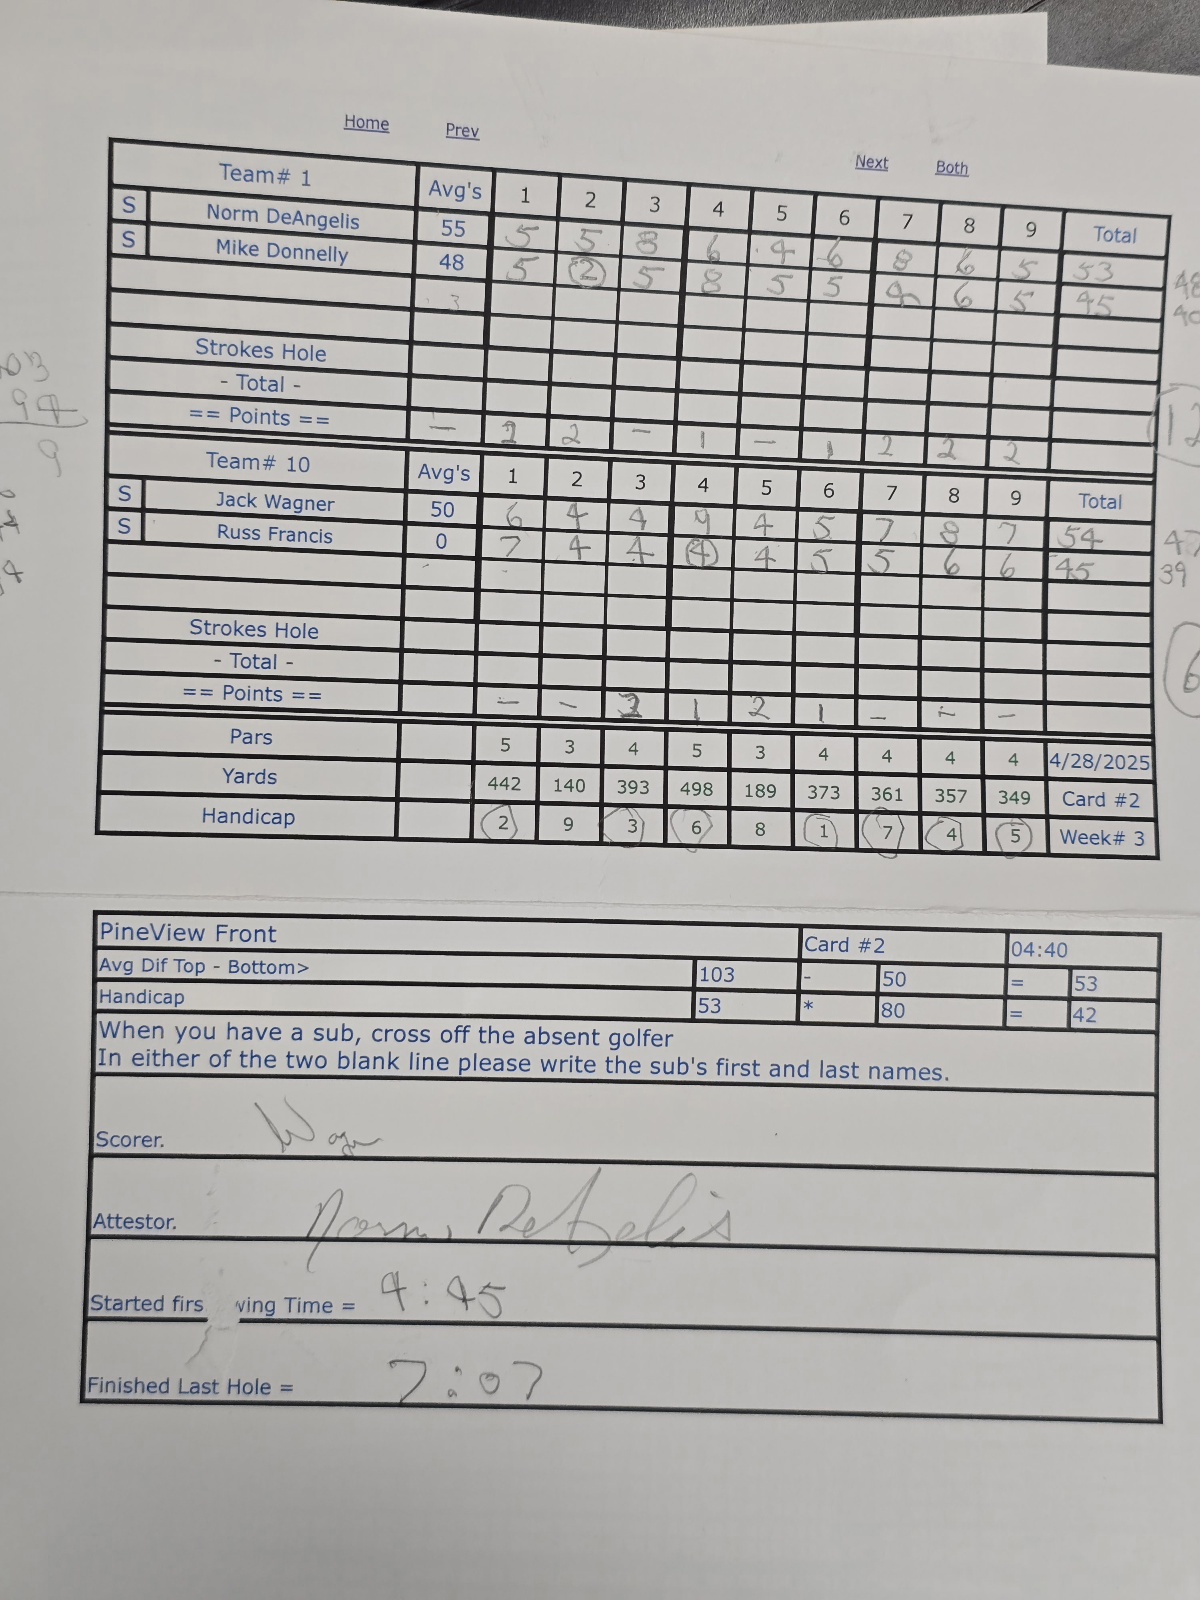 Home Prev Next Both
Team# 1 Avg's 1 2 3 4 5 6 7 8 9 Total
S Norm DeAngelis 55 5 5 8 6 4 6 8 6 5 53
S Mike Donnelly 48 5 2 5 8 5 5 4 6 5 45 48
3 40
Strokes Hole
- Total -
== Points == — 2 2 — 1 — 1 2 2 2 12
Team# 10 Avg's 1 2 3 4 5 6 7 8 9 Total
S Jack Wagner 50 6 4 4 9 4 5 7 8 7 54 47
S Russ Francis 0 7 4 4 4 4 5 5 6 6 45 39
Strokes Hole
- Total - 6
== Points == — — 1 2 1 — — —
Pars 5 3 4 5 3 4 4 4 4 4/28/2025
Yards 442 140 393 498 189 373 361 357 349 Card #2
Handicap 2 9 3 6 8 1 7 4 5 Week# 3
03
94
9
PineView Front Card #2 04:40
Avg Dif Top - Bottom> 103 - 50 = 53
Handicap 53 * 80 = 42
When you have a sub, cross off the absent golfer
In either of the two blank line please write the sub's first and last names.
Scorer. Wagn
Attestor. Norm DeAngelis
Started firs wing Time = 4:45
Finished Last Hole = 7:07